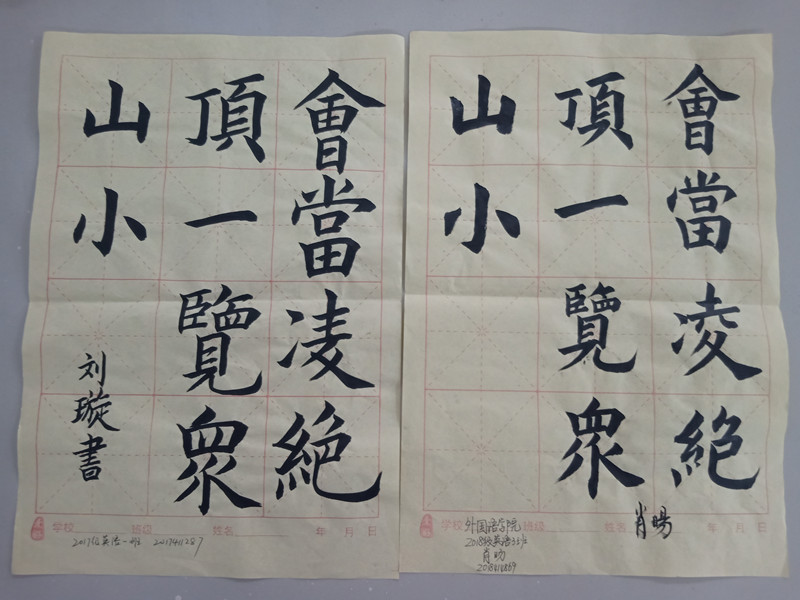 會當凌絕
頂一覽眾
山小
刘璇書
学校 班级 姓名 年 月 日
2017级英语一班 2017411287
會當凌絕
頂一覽眾
山小
学校 外国语学院 班级 姓名 肖旸 年 月 日
2018级英语3班